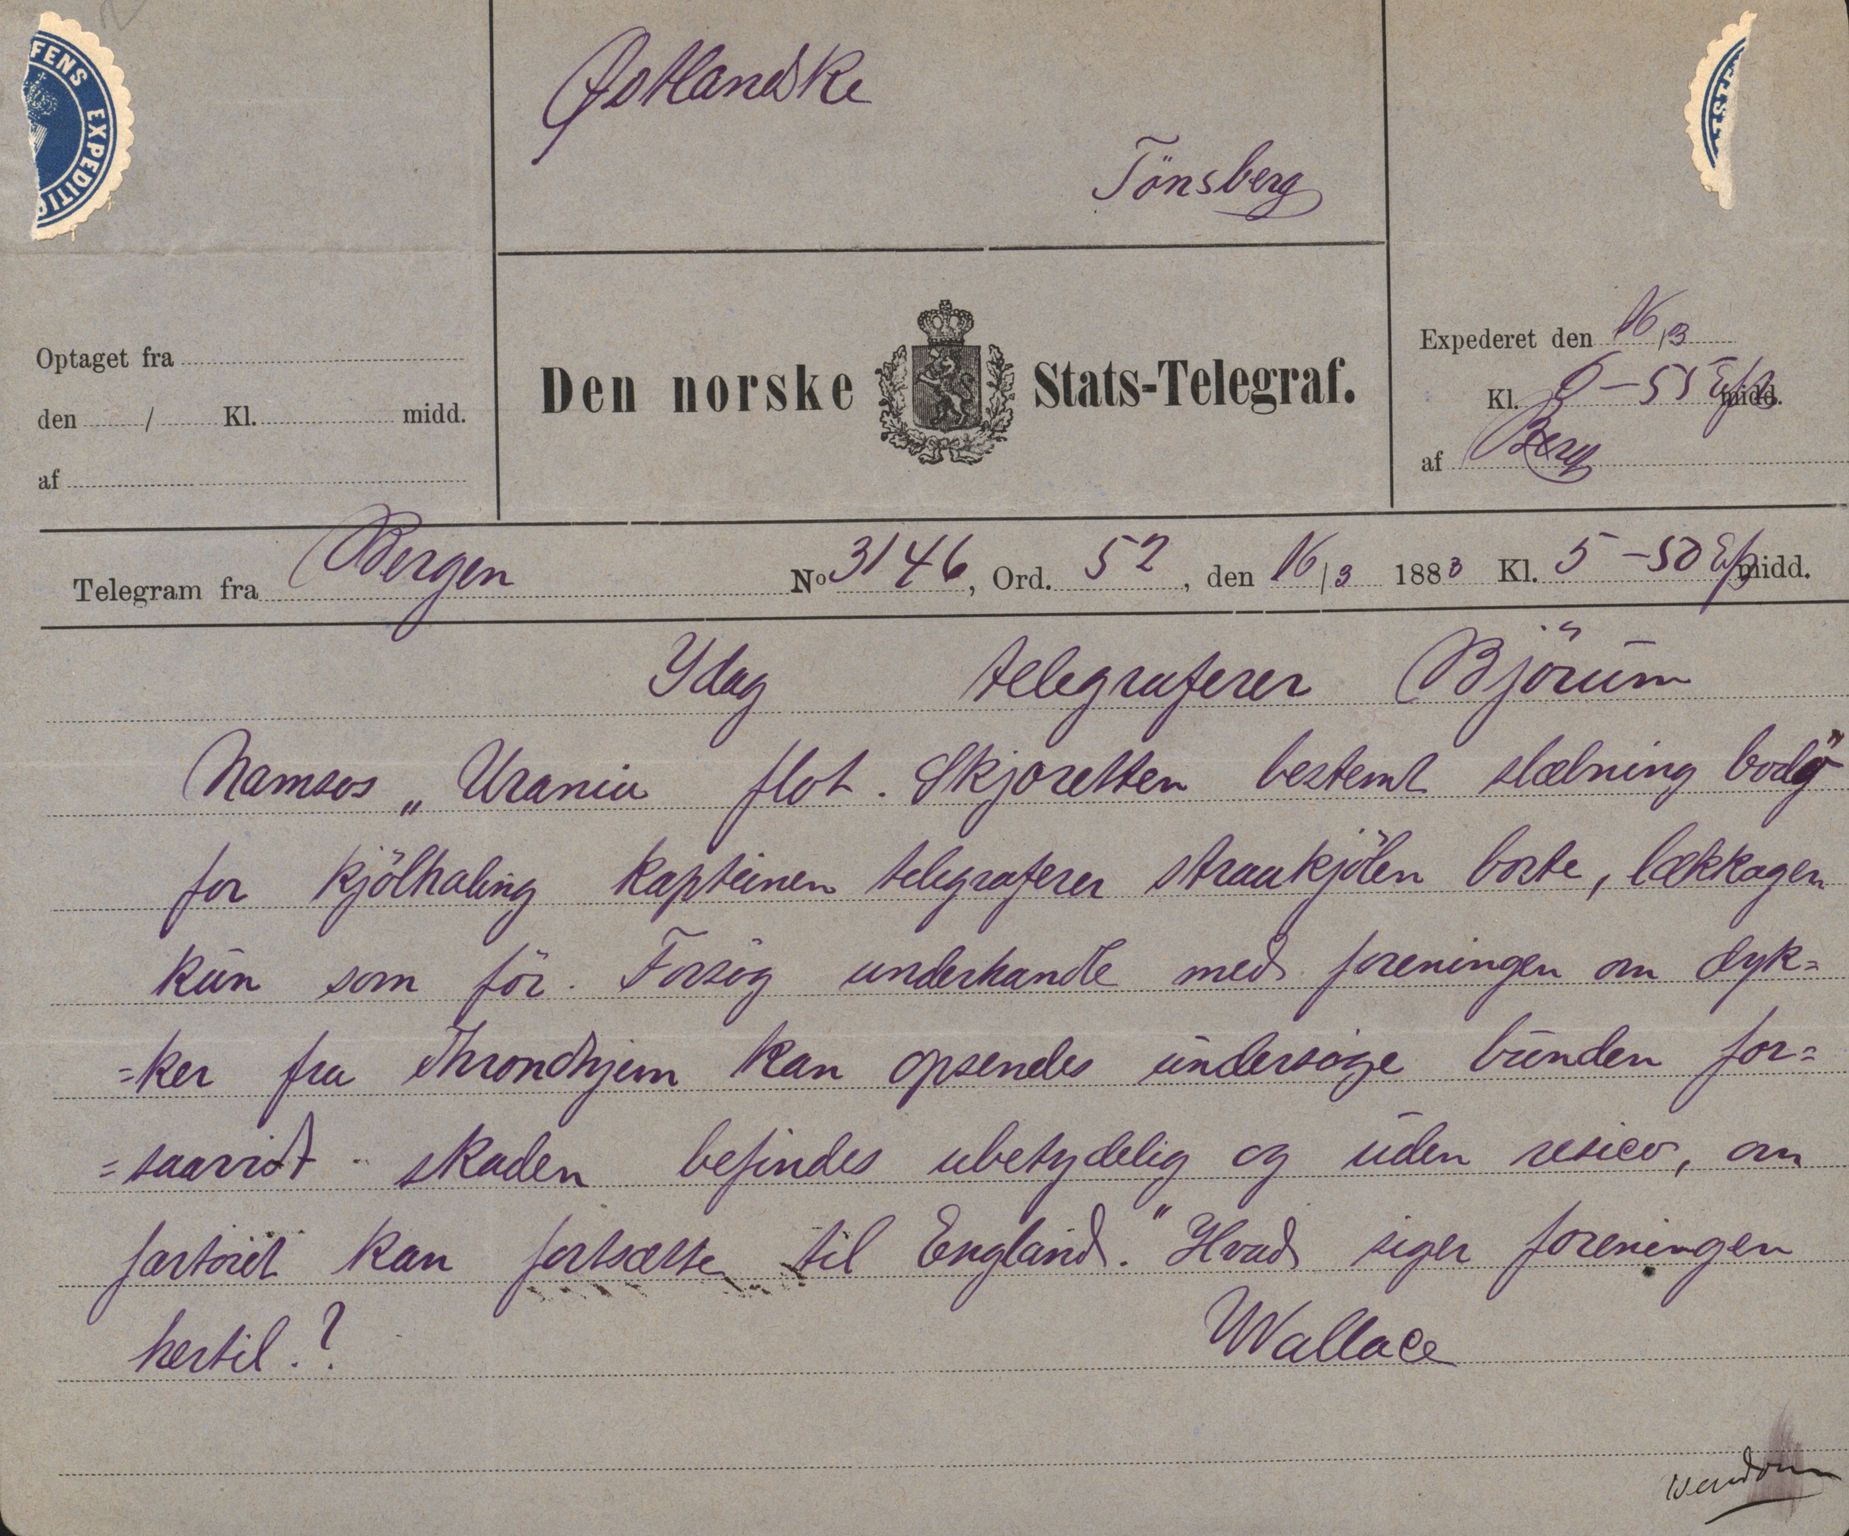 FENS EXPEDITIO
Østlandske
Tönsberg
Optaget fra
den / Kl. midd.
af
Den norske Stats-Telegraf.
Expederet den 16/3
Kl. 6-55 Efp midd.
af Berg
Telegram fra Bergen No 3146, Ord. 52, den 16/3 1883 Kl. 5-50 Ef midd.
Idag telegraferer Björum
Namsos „Urania flot. Skjøretten bestemt slæbning bodø"
for kjölhaling kapteinen telegraferer straakjölen borte, lækkagen
kun som för. Forsög underhandle med foreningen om dyk=
=ker fra Throndhjem kan opsendes undersøge bunden for=
=saavidt skaden befindes ubetydelig og uden resico, om
fartöiet kan fortsætte til England." Hvad siger foreningen
hertil.?
Wallace